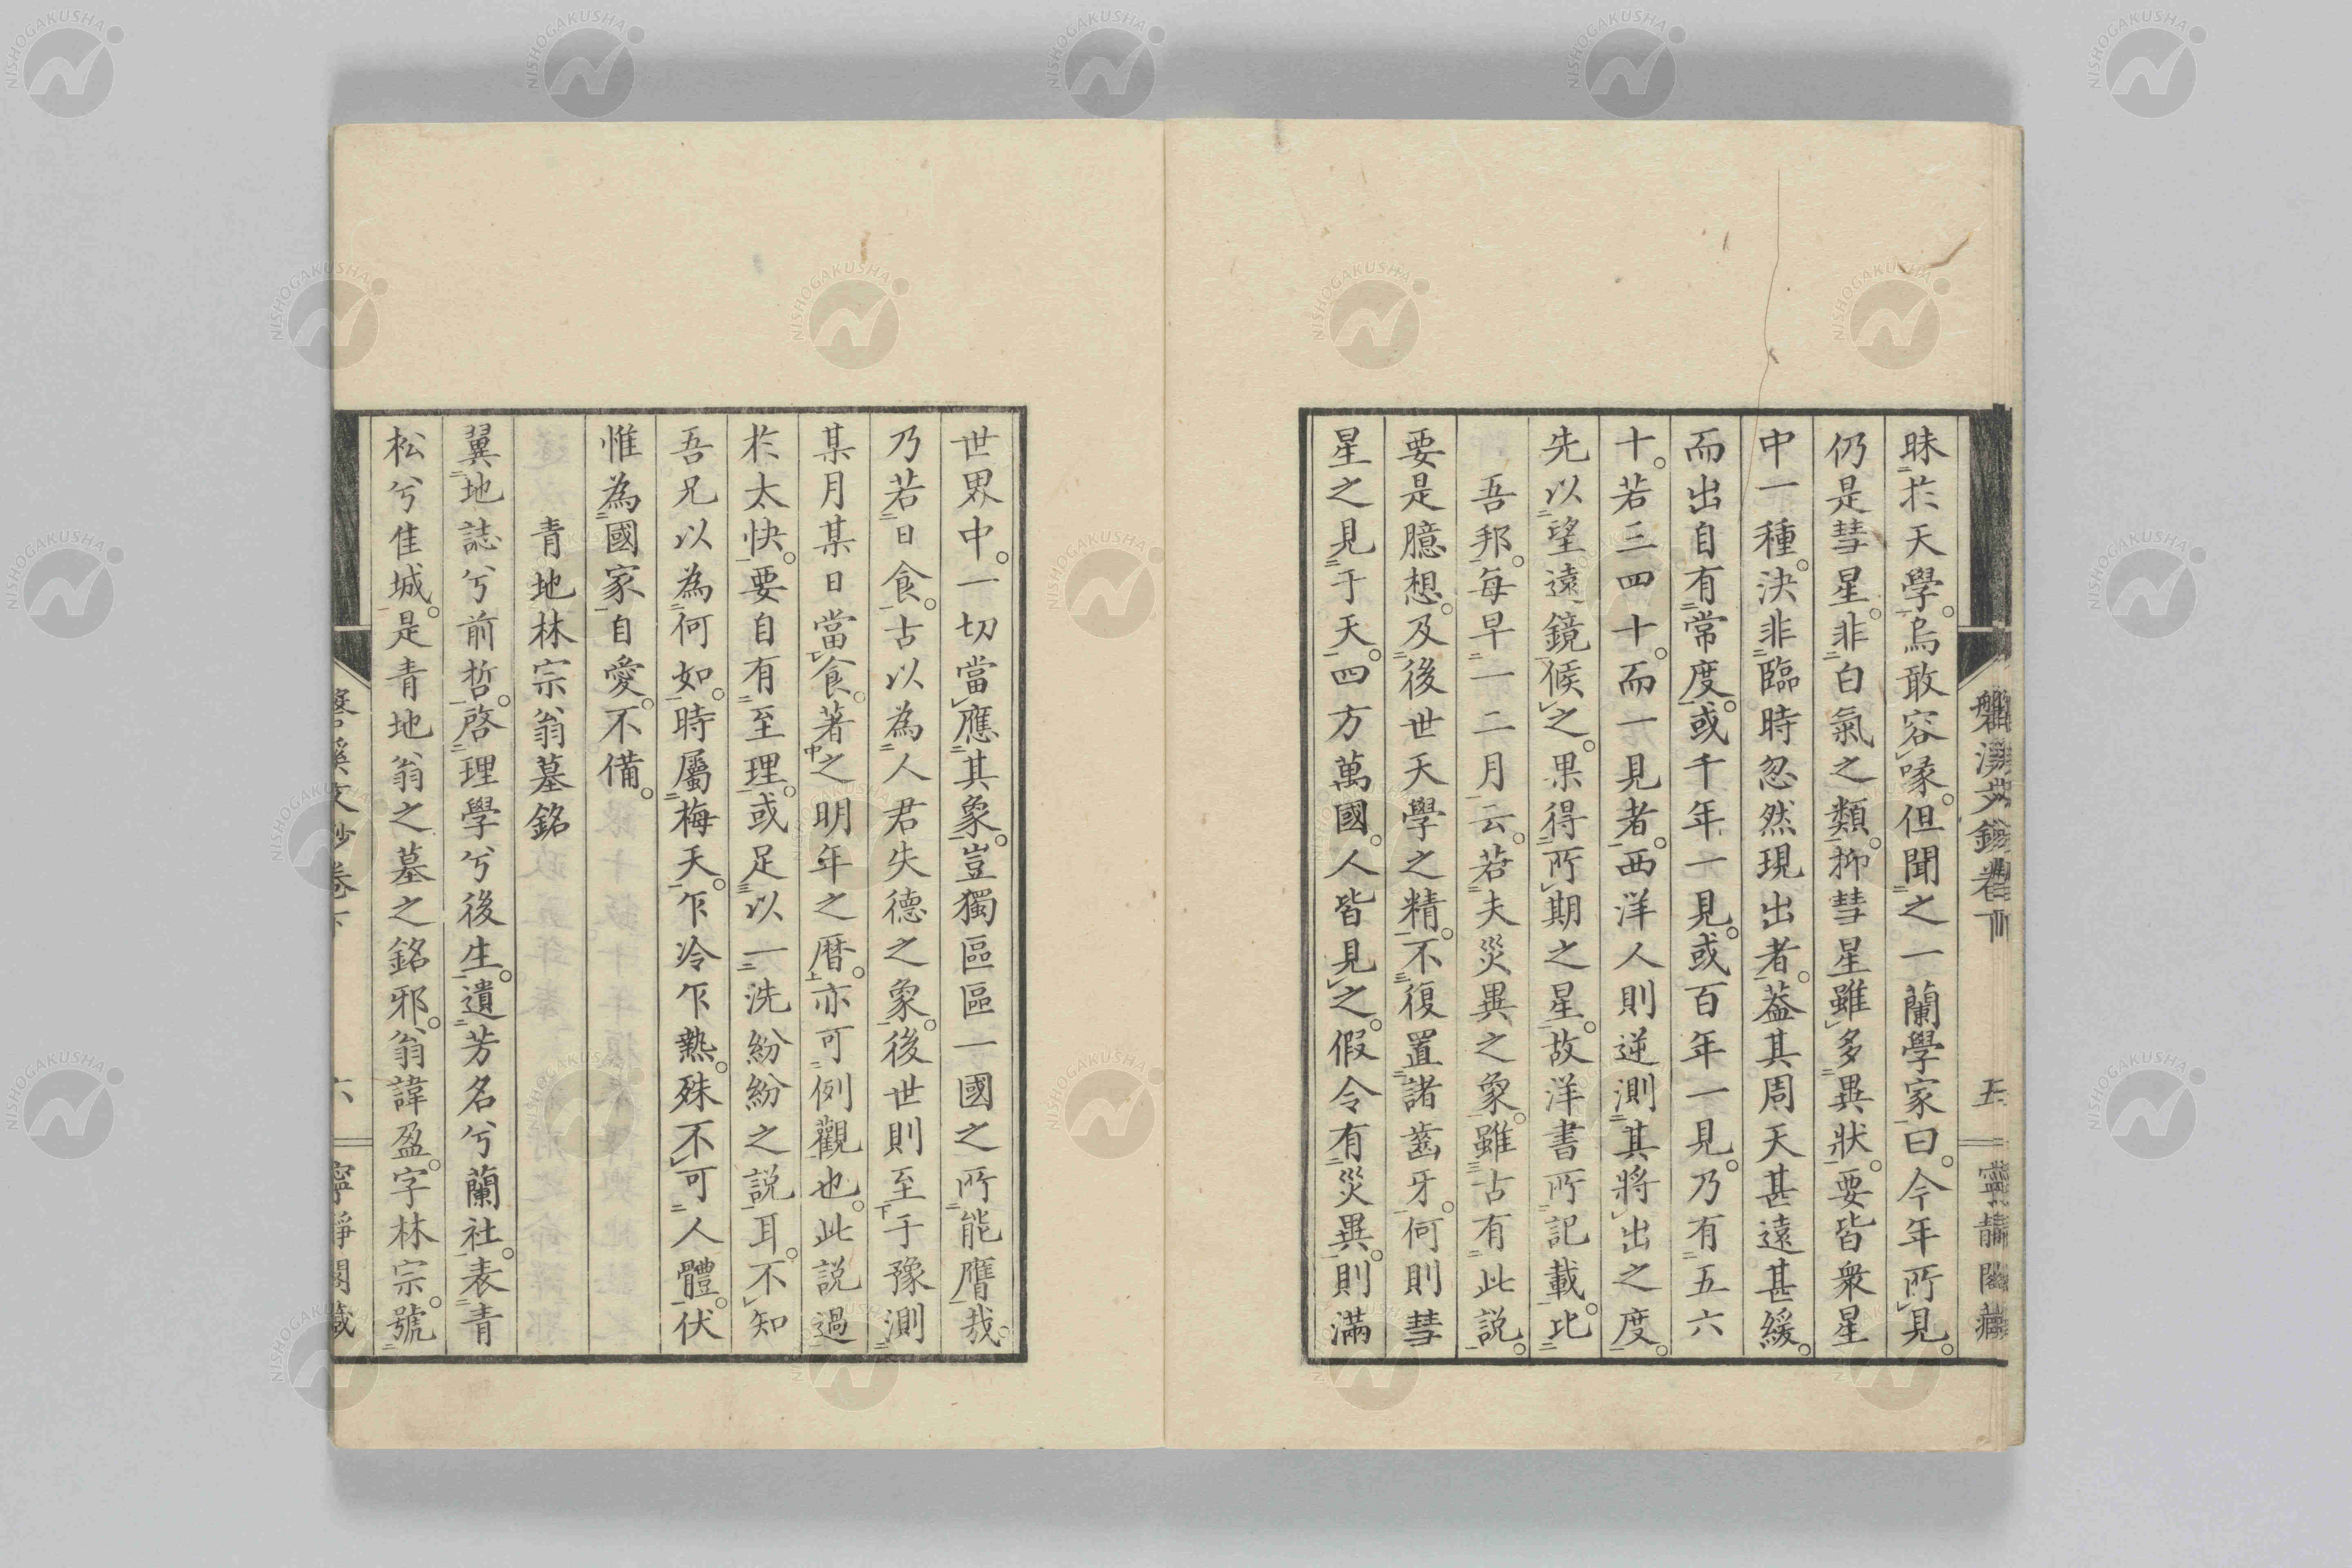 磐溪文鈔卷下 五 寧靜閣藏
昧於天學。烏敢容喙。但聞之一蘭學家曰。今年所見。
仍是彗星。非白氣之類。抑彗星雖多異狀。要皆衆星
中一種。決非臨時忽然現出者。蓋其周天甚遠甚緩。
而出自有常度。或千年一見。或百年一見。乃有五六
十。若三四十。而一見者。西洋人則逆測其將出之度。
先以望遠鏡候之。果得所期之星。故洋書所記載。比
吾邦。每早一二月云。若夫災異之象。雖古有此説。
要是臆想。及後世天學之精。不復置諸齒牙。何則彗
星之見于天。四方萬國。人皆見之。假令有災異。則滿
世界中。一切當應其象。豈獨區區一國之所能膺哉。
乃若日食。古以為人君失德之象。後世則至于豫測
某月某日當食。著之明年之曆。亦可例觀也。此説過
於太快。要自有至理。或足以一洗紛紛之説耳。不知
吾兄以為何如。時屬梅天。乍冷乍熱。殊不可人體。伏
惟為國家自愛。不備。
青地林宗翁墓銘
翼地誌兮前哲。啓理學兮後生。遺芳名兮蘭社。表青
松兮佳城。是青地翁之墓之銘邪。翁諱盈。字林宗。號
磐溪文鈔卷下 六 寧靜閣藏
NISHOGAKUSHA